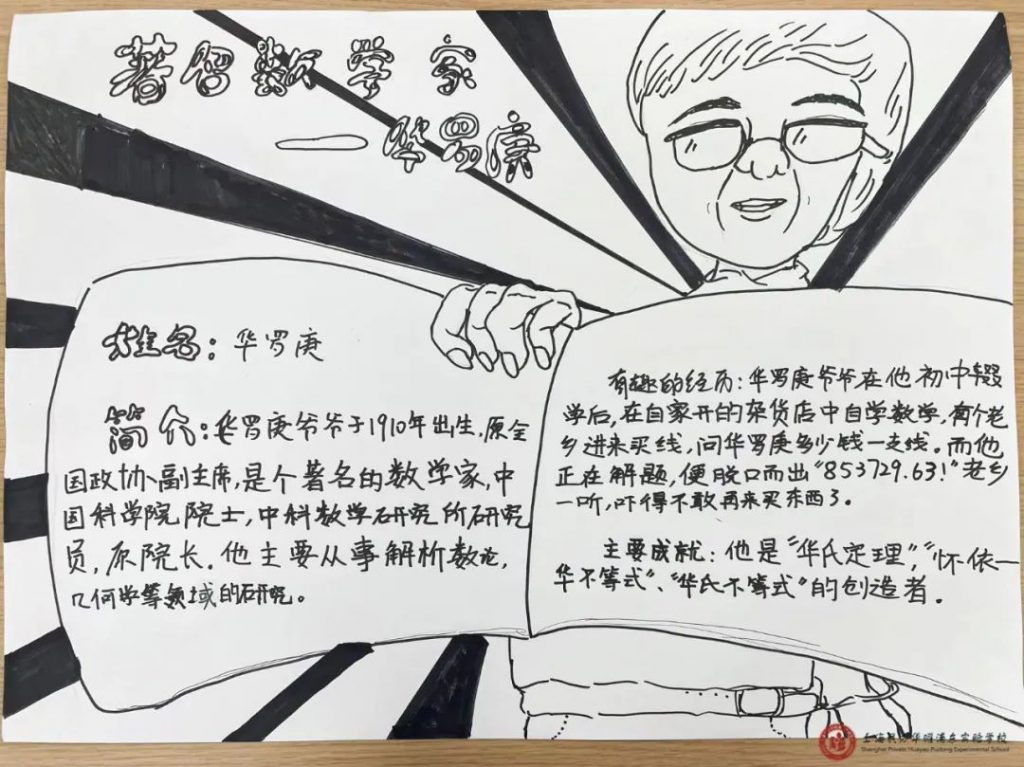 著名数学家
——华罗庚
姓名：华罗庚
简介：华罗庚爷爷于1910年出生，原全
国政协副主席，是个著名的数学家，中
国科学院院士，中科数学研究所研究
员，原院长。他主要从事解析数论，
几何学等领域的研究。
有趣的经历：华罗庚爷爷在他初中辍
学后，在自家开的杂货店中自学数学，有个老
乡进来买线，问华罗庚多少钱一支线。而他
正在解题，便脱口而出“853729.63！”老乡
一听，吓得不敢再来买东西了。
主要成就：他是“华氏定理”，“怀依一
华不等式”、“华氏不等式”的创造者．
上海民办华曜浦东实验学校
Shanghai Private Huayao Pudong Experimental School